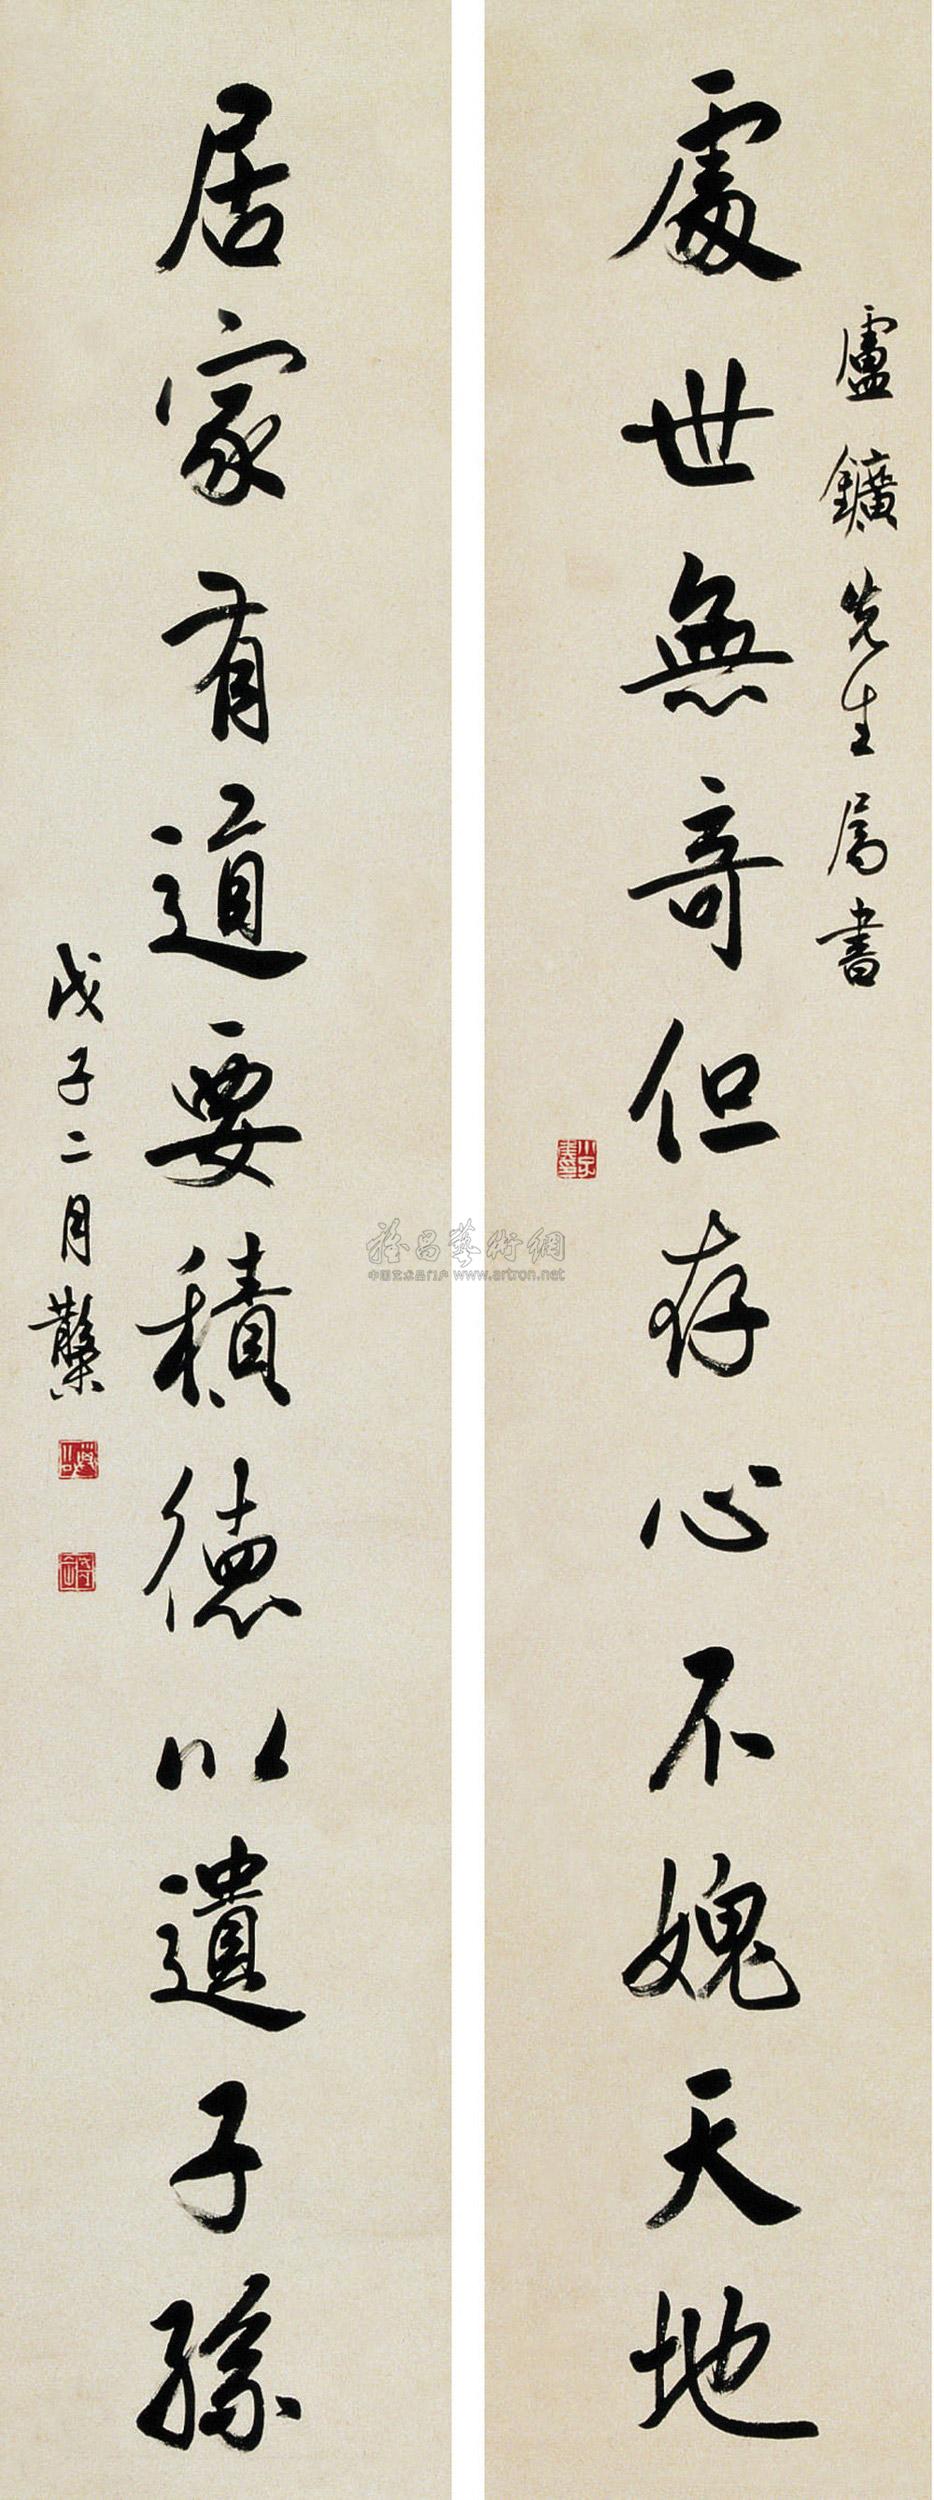 盧鑛先生属書
處世無奇但存心不媿天地
居家有道要積德以遺子孫
戊子二月
雅昌藝術網
中国艺术品门户 www.artron.net